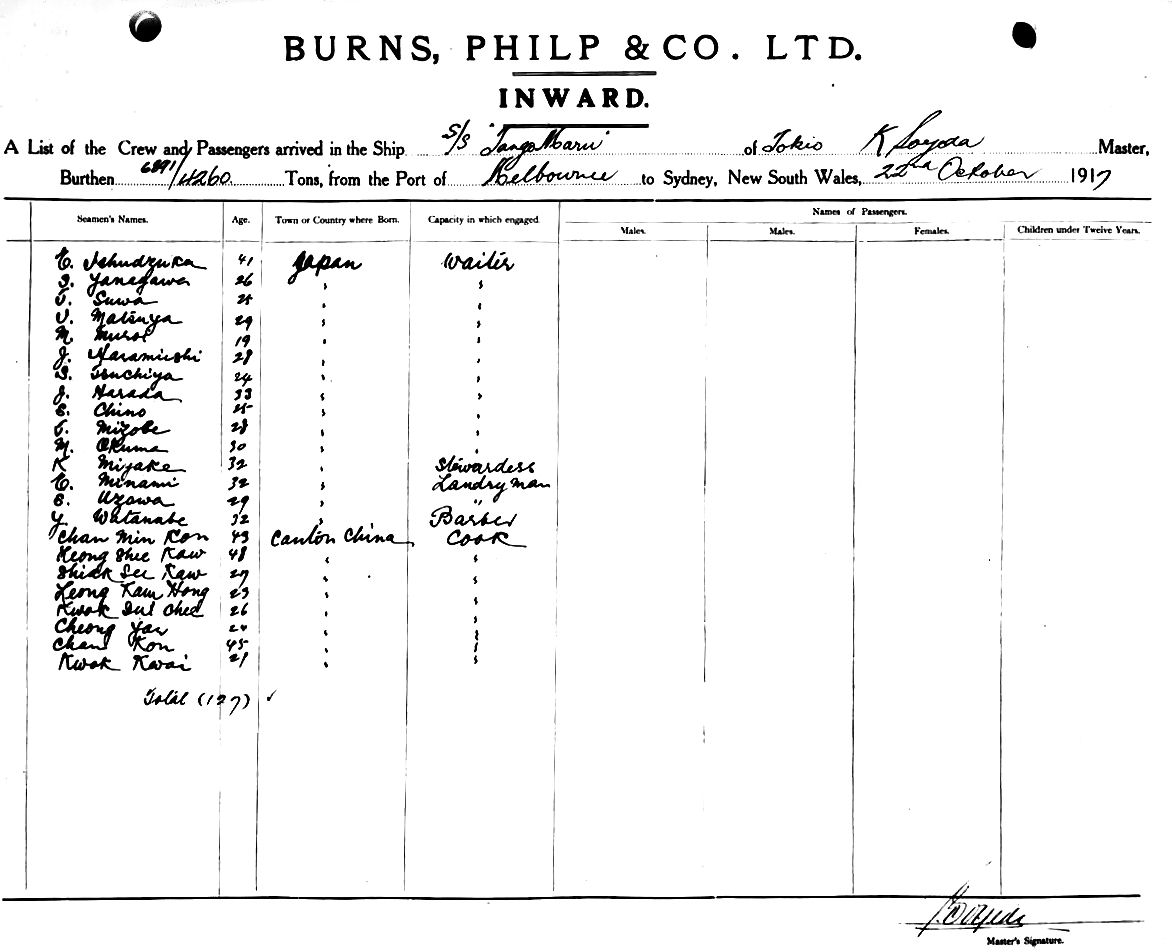 BURNS, PHILP & CO. LTD.
INWARD.
A List of the Crew and Passengers arrived in the Ship S/S "Tango Maru" of Tokio K Soyeda Master,
Burthen 6891/4260 Tons, from the Port of Melbourne to Sydney, New South Wales, 22nd October 1917
Names of Passengers.
Seamen's Names. Age. Town or Country where Born. Capacity in which engaged. Males. Males. Females. Children under Twelve Years.
41 Japan Waiter
Yanagawa 26 " "
Suwa 25 " "
Matsuya 29 " "
M. 19 " "
J. 28 " "
Tsuchiya 24 " "
J. Harada 33 " "
Chino 25 " "
Mizobe 28 " "
M. Okuma 30 " "
K Miyake 32 " Stewardess
Minami 32 " Landry man
Uzawa 29 " "
Y. Watanabe 32 " Barber
Chan Min Kon 43 Canton China Cook
Kaw 48 " "
Kaw 27 " "
Leong Kam Hong 23 " "
Kwok Chee 26 " "
Cheong " "
Chan Kon 45 " "
Kwok Kwai 21 " "
Total (127) ✓
Soyeda
Master's Signature.